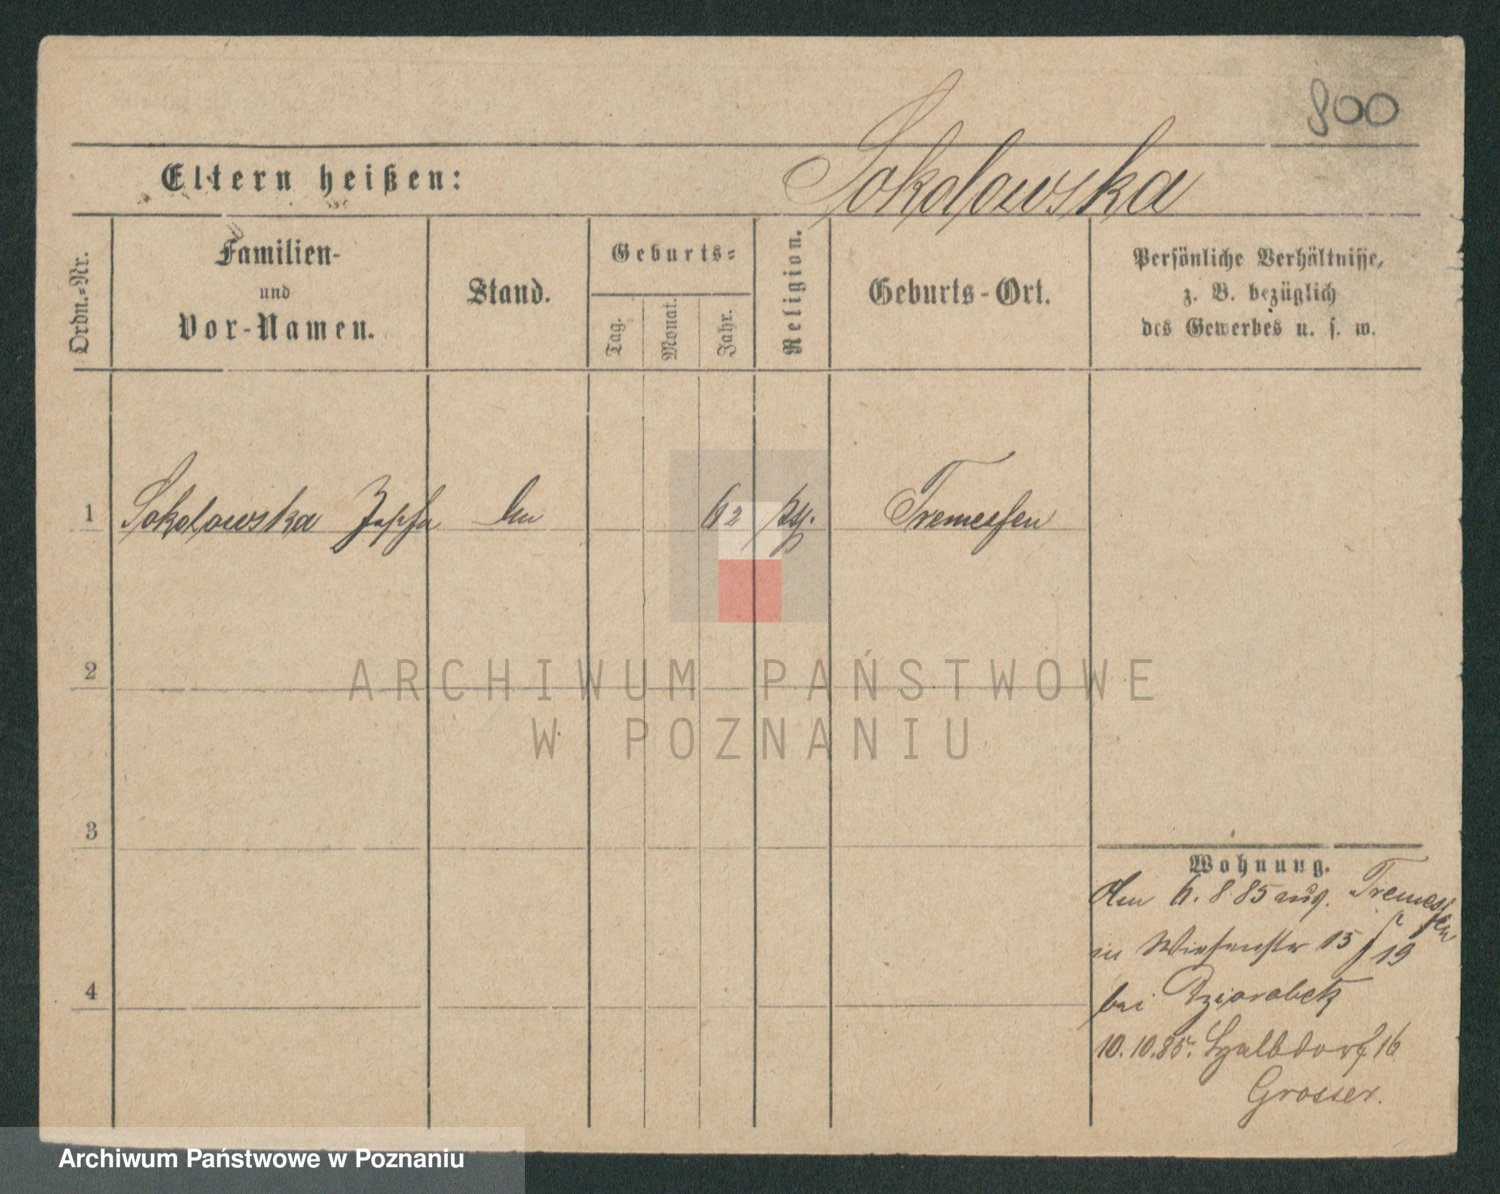 800
Eltern heißen: Sokolowska
Ordn.-Nr.
Familien-
und
Vor-Namen.
Stand.
Geburts-
Tag.
Monat.
Jahr.
Religion.
Geburts-Ort.
Persönliche Verhältnisse,
z. B. bezüglich
des Gewerbes u. s. w.
1 Sokolowska 62 Tremessen
2
ARCHIWUM PAŃSTWOWE
W POZNANIU
3
4
Wohnung.
6. 8 85 Tremessen
in Wiesenstr 15 / 19
bei Dziarabek
10.10.85. Halbdorf 16
Grosser.
Archiwum Państwowe w Poznaniu